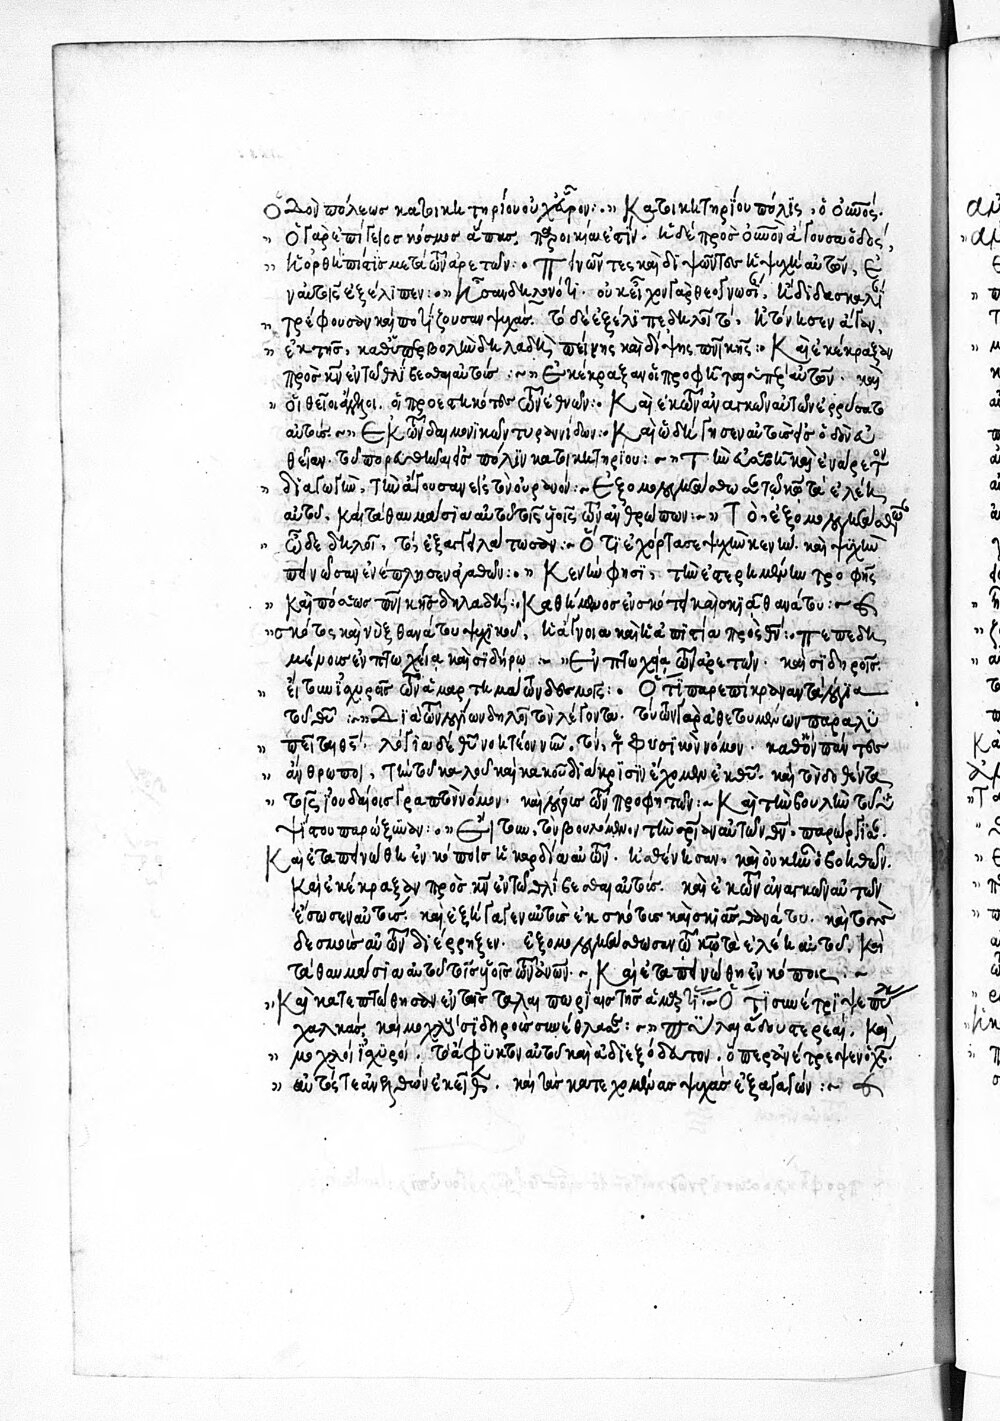 Ὁδὸν πόλεως κατοικητηρίου οὐχ εὗρον: Κατοικητηρίου πόλις, ὁ οὐρανός.
Ὁ γὰρ ἐπίγειος κόσμος ἅπας, παροικία ἐστίν. ἡ δὲ πρὸς οὐρανὸν ἄγουσα ὁδὸς,
ἡ ὀρθὴ πίστις μετὰ τῶν ἀρετῶν: Πεινῶντες καὶ διψῶντες ἡ ψυχὴ αὐτῶν, ἐν
αὐτοῖς ἐξέλιπεν: οὐκ εἶχον γὰρ θεογνωσίαν, ἢ διδασκαλίαν
τρέφουσαν καὶ ποτίζουσαν ψυχάς. τὸ δὲ ἐξέλιπε δηλοῖ τὸ,
ἐκ τῆς, καθ' ὑπερβολὴν δηλαδὴ πείνης καὶ δίψης πνευματικῆς: Καὶ ἐκέκραξαν
πρὸς κύριον ἐν τῷ θλίβεσθαι αὐτούς: Ἐκέκραξαν οἱ προφῆται ὑπὲρ αὐτῶν. καὶ
οἱ θεῖοι ἄγγελοι, οἱ προεστηκότες τῶν ἐθνῶν: Καὶ ἐκ τῶν ἀναγκῶν αὐτῶν ἐρρύσατο
αὐτούς: Ἐκ τῶν δαιμονικῶν τυραννίδων: Καὶ ὡδήγησεν αὐτοὺς εἰς ὁδὸν εὐ
θεῖαν. τοῦ πορευθῆναι εἰς πόλιν κατοικητηρίου: Τὴν εὐσεβῆ καὶ ἐνάρετον
διαγωγὴν, τὴν ἄγουσαν εἰς τὸν οὐρανόν: Ἐξομολογησάσθωσαν τῷ κυρίῳ τὰ ἐλέη
αὐτοῦ. καὶ τὰ θαυμάσια αὐτοῦ τοῖς υἱοῖς τῶν ἀνθρώπων: Τὸ, ἐξομολογησάσθωσαν
ὧδε δηλοῖ, τὸ, ἐξαγγειλάτωσαν: Ὅτι ἐχόρτασε ψυχὴν κενὴν. καὶ ψυχὴν
πεινῶσαν ἐνέπλησεν ἀγαθῶν: Κενὴν φησὶ, τὴν ἐστερημένην τροφῆς
καὶ πόσεως πνευματικῆς δηλαδή: Καθημένους ἐν σκότει καὶ σκιᾷ θανάτου:
σκότος καὶ νὺξ θανάτου ψυχικοῦ, ἡ ἄγνοια καὶ ἡ ἀπιστία πρὸς θεόν: Πεπεδη
μένους ἐν πτωχείᾳ καὶ σιδήρῳ: Ἐν πτωχείᾳ τῶν ἀρετῶν. καὶ σιδήροις.
εἴτουν ἰσχυροῖς τῶν ἁμαρτημάτων δεσμοῖς: Ὅτι παρεπίκραναν τὰ λόγια
τοῦ θεοῦ: Διὰ τῶν λογίων δηλοῖ τὸν λέγοντα. τούτων γὰρ ἀθετουμένων παραλυ
πεῖται θεός. λόγια δὲ θεοῦ νοητέον νῦν, τὸν, τε φυσικὸν νόμον. καθ' ὃν πάντες
ἄνθρωποι, τὴν τοῦ καλοῦ καὶ κακοῦ διάκρισιν ἔχομεν ἐκ θεοῦ. καὶ τὸν δοθέντα
τοῖς Ἰουδαίοις γραπτὸν νόμον. καὶ λόγους τῶν προφητῶν: Καὶ τὴν βουλὴν τοῦ ὑ
ψίστου παρώξυναν: Εἴτουν, τὸν βουλόμενον τὴν σωτηρίαν αὐτῶν θεόν. παρώργισαν.
Καὶ ἐταπεινώθη ἐν κόποις ἡ καρδία αὐτῶν. ἠσθένησαν, καὶ οὐκ ἦν ὁ βοηθῶν.
Καὶ ἐκέκραξαν πρὸς κύριον ἐν τῷ θλίβεσθαι αὐτούς. καὶ ἐκ τῶν ἀναγκῶν αὐτῶν
ἔσωσεν αὐτούς. καὶ ἐξήγαγεν αὐτοὺς ἐκ σκότους καὶ σκιᾶς θανάτου. καὶ τοὺς
δεσμοὺς αὐτῶν διέρρηξεν. ἐξομολογησάσθωσαν τῷ κυρίῳ τὰ ἐλέη αὐτοῦ. καὶ
τὰ θαυμάσια αὐτοῦ τοῖς υἱοῖς τῶν ἀνθρώπων. Καὶ ἐταπεινώθη ἐν κόποις:
Καὶ κατεπτώθησαν ἐν ταῖς ταλαιπωρίαις τῆς ἁμαρτίας: Ὅτι συνέτριψε πύλας
χαλκᾶς, καὶ μοχλοὺς σιδηροῦς συνέθλασεν: Πύλαι ᾅδου στερεαὶ, καὶ
μοχλοὶ ἰσχυροί. τὸ ἄφυκτον αὐτοῦ καὶ ἀδιεξόδευτον. ὅπερ ἀνέτρεψεν ὁ χριστὸς.
αὐτός τε ἀνελθὼν ἐκεῖθεν. καὶ τὰς κατεχομένας ψυχὰς ἐξαγαγών: